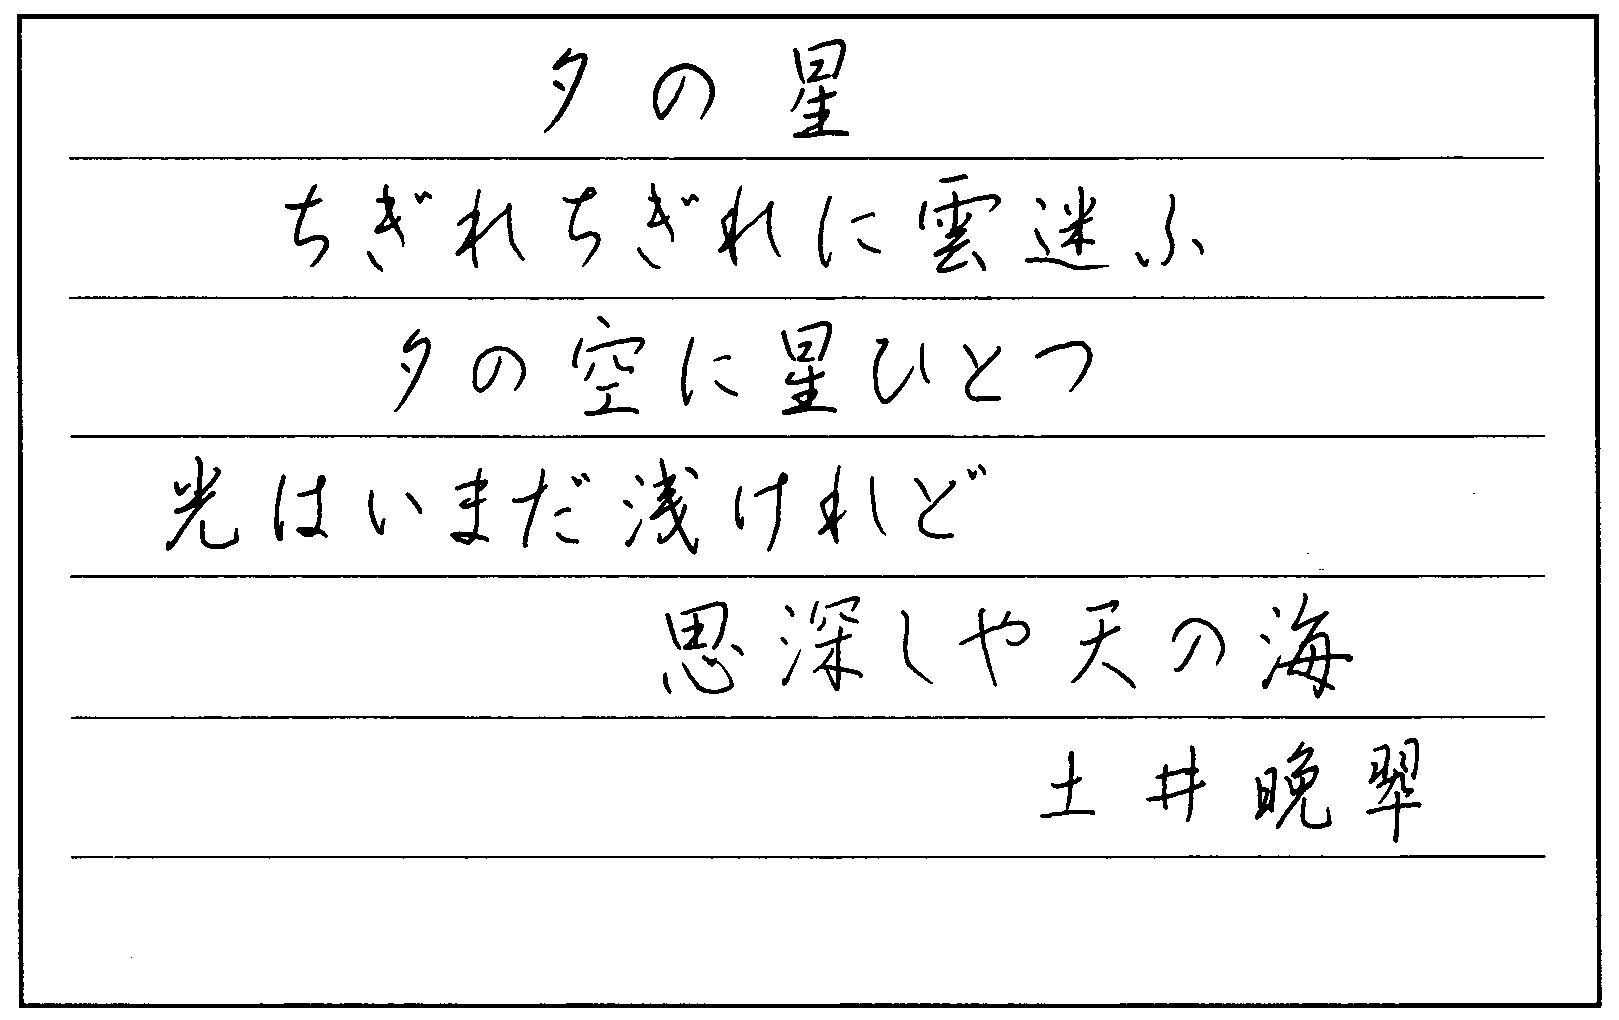 夕の星
ちぎれちぎれに雲迷ふ
夕の空に星ひとつ
光はいまだ浅けれど
思深しや天の海
土井晩翠